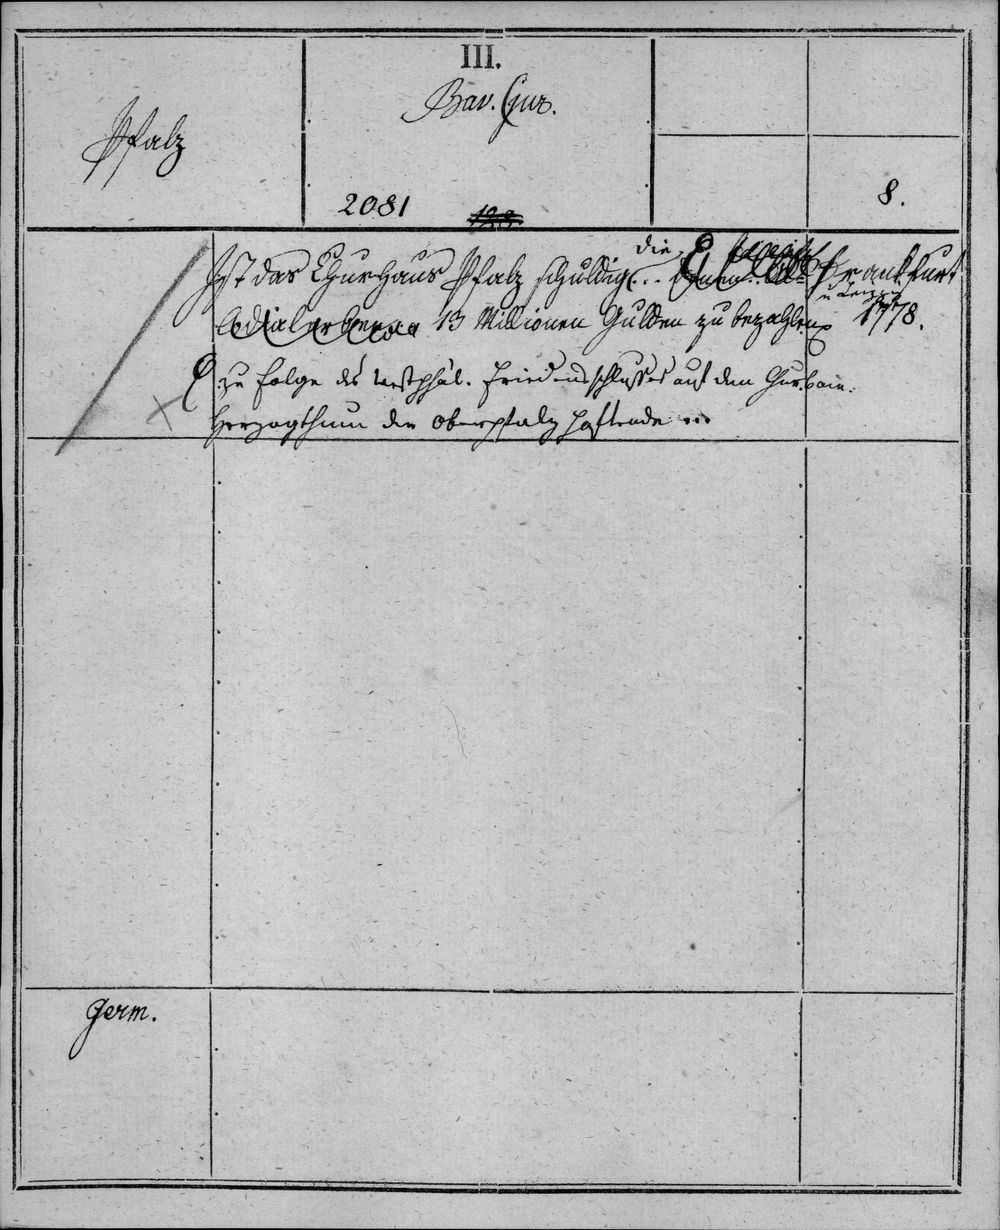 III.
Bav. Jur.
Pfalz
2081
8.
Ist das Churhaus Pfalz schuldig... die
13 Millionen Gulden zu bezahlen
zu Folge des westphäl. Friedensschlusses auf dem Churbair.
Herzogthum der Oberpfalz haftende ...
Frankfurt
u Leipzig
1778.
Germ.